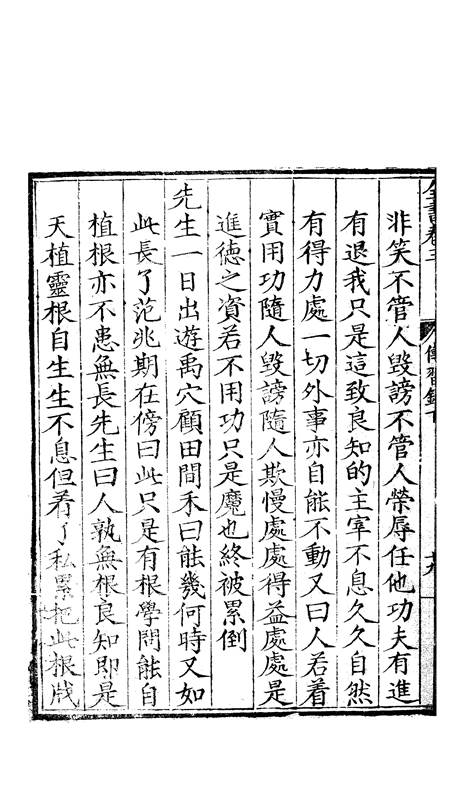 全書卷三 傳習錄下 十九
非笑不管人毀謗不管人榮辱任他功夫有進
有退我只是這致良知的主宰不息久久自然
有得力處一切外事亦自能不動又曰人若着
實用功隨人毀謗隨人欺慢處處得益處處是
進德之資若不用功只是魔也終被累倒
先生一日出遊禹穴顧田間禾曰能幾何時又如
此長了范兆期在傍曰此只是有根學問能自
植根亦不患無長先生曰人孰無根良知即是
天植靈根自生生不息但着了私累把此根戕